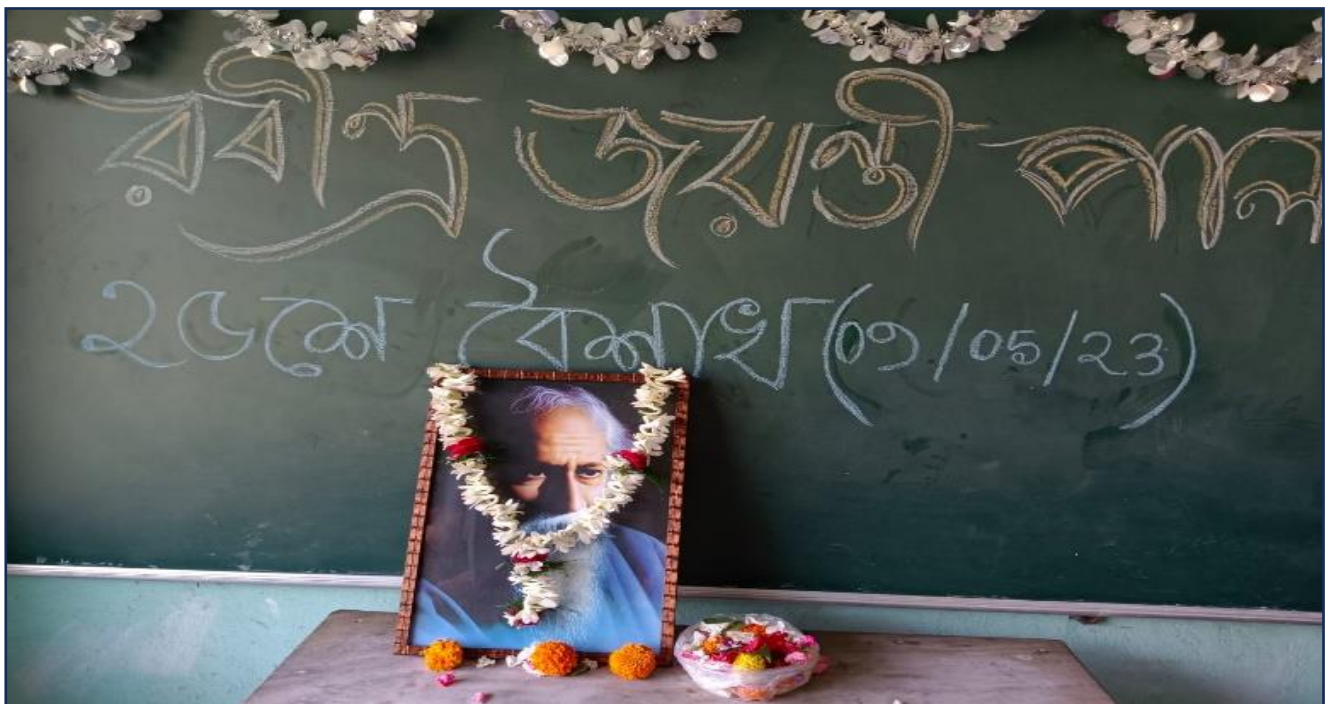 রবীন্দ্র জয়ন্তী পাল
২৫শে বৈশাখ (09/05/23)